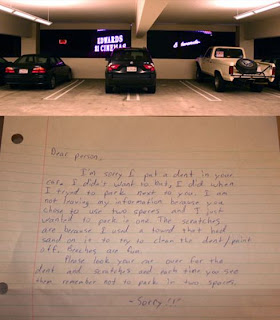 EDWARDS
CINEMAS
Dear person,
I'm sorry I put a dent in your
car. I didn't want to but, I did when
I tryed to park next to you. I am
not leaving my information because you
chose to use two spaces and I just
wanted to park in one. The scratches
are because I used a towel that had
sand on it to try to clean the dent/paint
off. Beaches are fun.
Please look your car over for the
dent and scratches and each time you see
them remember not to park in two spaces.
-Sorry!!!